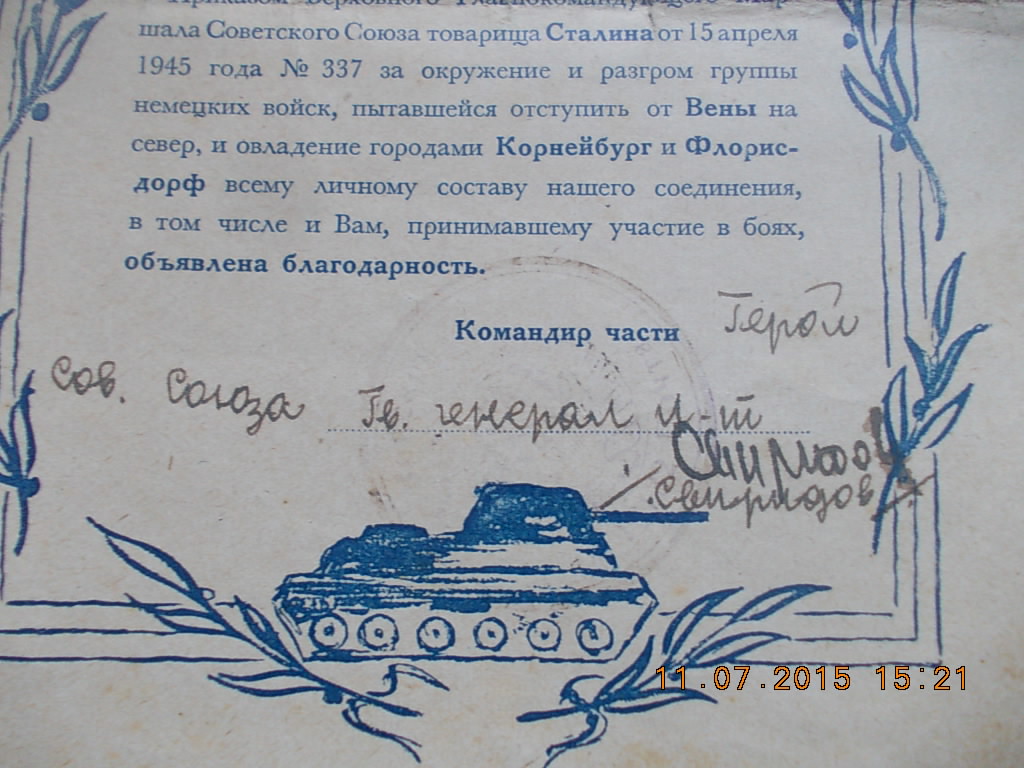 Приказом Верховного Главнокомандующего Мар-
шала Советского Союза товарища Сталина от 15 апреля
1945 года № 337 за окружение и разгром группы
немецких войск, пытавшейся отступить от Вены на
север, и овладение городами Корнейбург и Флорис-
дорф всему личному составу нашего соединения,
в том числе и Вам, принимавшему участие в боях,
объявлена благодарность.
Командир части Герой
Сов. Союза Гв. генерал л-т
Свиридов
11.07.2015 15:21